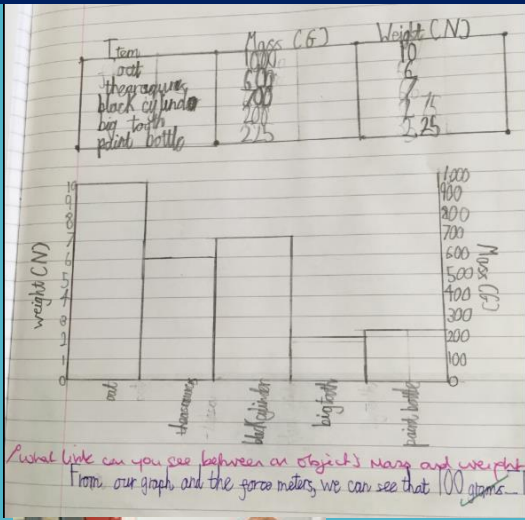 Item Mass (G) Weight (N)
oat 1000 10
600 6
black cylinder 7
big tooth 200
paint bottle 225 25
weight (N)
10
9
8
7
6
5
4
3
2
1
0
1000
900
800
700
600
500
400
300
200
100
0
Mass (G)
oat
black cylinder
big tooth
paint bottle
what link can you see between an object's mass and weight
From our graph and the force meters, we can see that 100 grams